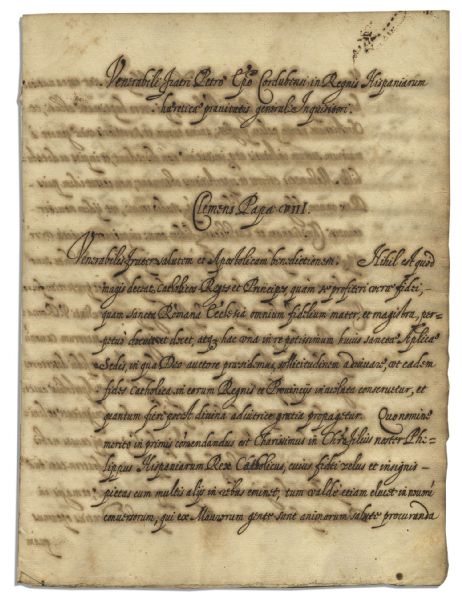 Venerabili Fratri Petro Epo Cordubensi in Regnis Hispaniarum
hæreticæ pravitatis generali Inquisitori.
Clemens Papa VIII.
Venerabilis frater salutem et Apostolicam benedictionem. Nihil est quod
magis deceat Catholicos Reges et Principes quam se profiteri eam fidei,
quam sancta Romana Ecclesia omnium fidelium mater, et magistra, per-
petuo docuit et docet, atq3 hac una in re potissimum huius sanctæ Aplicæ
Sedis, in qua Deo auctore præsidemus, sollicitudinem adiuvare, ut eadem
fides Catholica in eorum Regnis et Provincijs inviolata conservetur, et
quantum fieri potest divina adiutrice gratia propagetur. Quo nomine
merito in primis comendandus est Charissimus in Chro filius noster Phi-
lippus Hispaniarum Rex Catholicus, cuius fidei zelus et insignis
pietas cum multis alijs in rebus eminet, tum valde etiam elucet in
conversorum, qui ex Maurorum gente sunt animarum salute procuranda